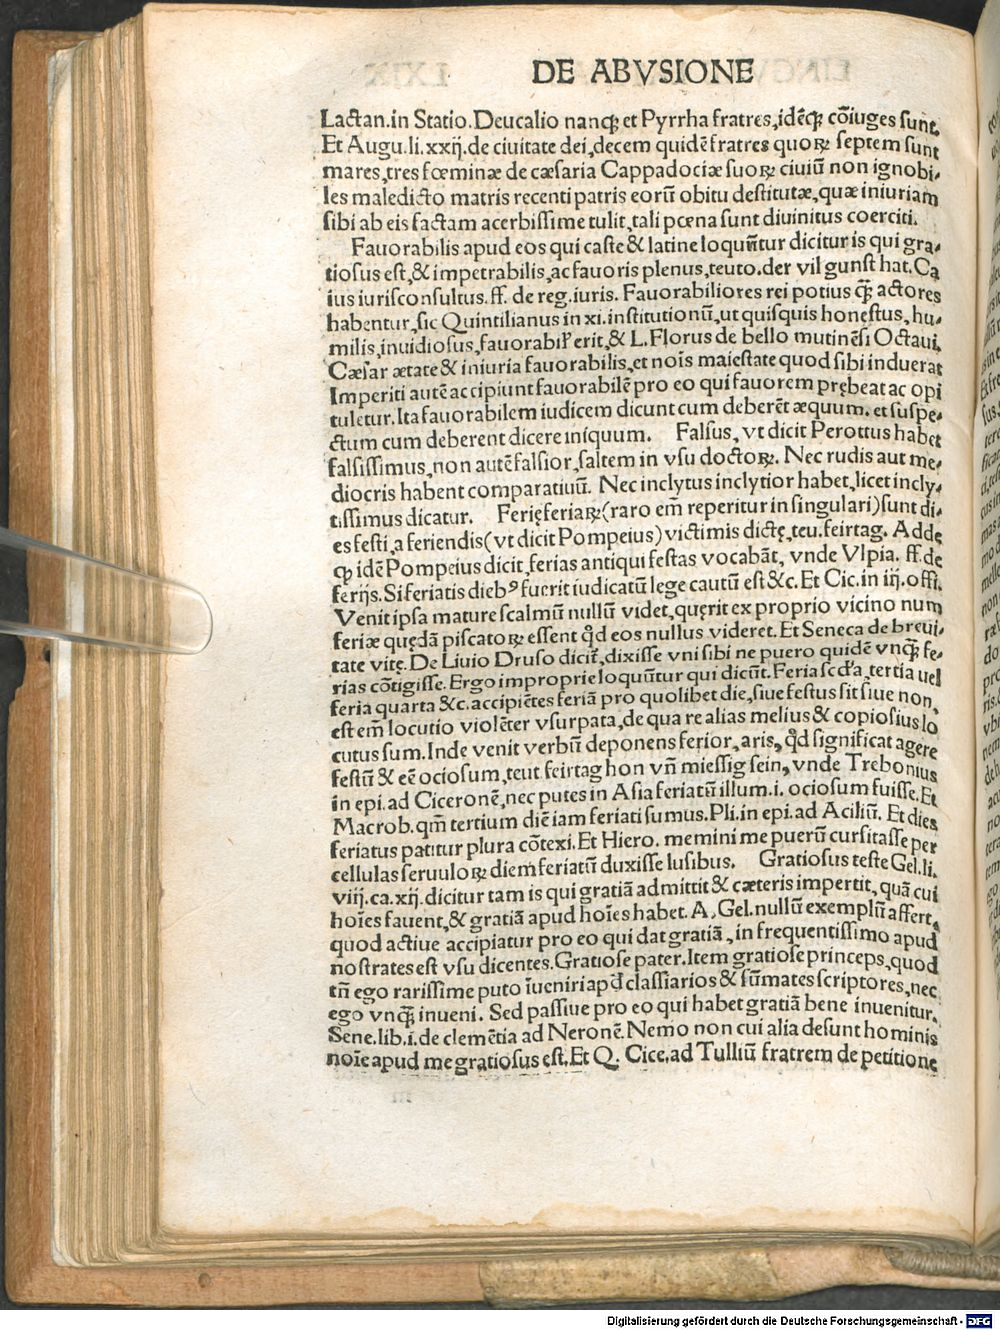 DE ABVSIONE
Lactan.in Statio.Deucalio nancꝙ et Pyrrha fratres,idẽcꝙ cõiuges sunt.
Et Augu.li.xxij.de ciuitate dei,decem quidẽ fratres quoꝝ septem sunt
mares,tres fœminæ de cæsaria Cappadociæ suoꝝ ciuiũ non ignobi⸗
les maledicto matris recenti patris eorũ obitu destitutæ,quæ iniuriam
sibi ab eis factam acerbissime tulit,tali pœna sunt diuinitus coerciti.
Fauorabilis apud eos qui caste & latine loquũtur dicitur is qui gra⸗
tiosus est,& impetrabilis,ac fauoris plenus,teuto.der vil gunst hat.Ca
ius iurisconsultus.ff. de reg.iuris. Fauorabiliores rei potius ꝙ̃ actores
habentur,sic Quintilianus in xi.institutionũ,ut quisquis honestus,hu⸗
milis,inuidiosus,fauorabil' erit,& L.Florus de bello mutinẽsi Octaui.
Cæsar ætate & iniuria fauorabilis,et noĩs maiestate quod sibi induerat
Imperiti autẽ accipiunt fauorabilẽ pro eo qui fauorem prębeat ac opi
tuletur.Ita fauorabilem iudicem dicunt cum deberẽt æquum. et suspe⸗
ctum cum deberent dicere iniquum. Falsus, vt dicit Perottus habet
falsissimus,non autẽ falsior,saltem in vsu doctoꝝ. Nec rudis aut me⸗
diocris habent comparatiuũ. Nec inclytus inclytior habet,licet incly⸗
tissimus dicatur. Ferię feriaꝝ(raro em̃ reperitur in singulari)sunt di⸗
es festi,a feriendis(vt dicit Pompeius)victimis dictę,teu.feirtag. Adde
ꝙ idẽ Pompeius dicit,ferias antiqui festas vocabãt, vnde Vlpia. ff.de
ferijs.Si feriatis diebꝰ fuerit iudicatũ lege cautũ est &c.Et Cic.in iij.offi.
Venit ipsa mature scalmũ nullũ videt,quęrit ex proprio vicino num
feriæ quędã piscatoꝝ essent qd̃ eos nullus videret.Et Seneca de breui⸗
tate vitę.De Liuio Druso dicit̃,dixisse vni sibi ne puero quidẽ vnꝙ̃ fe⸗
rias cõtigisse.Ergo improprie loquũtur qui dicũt.Feria scd̃a,tertia uel
feria quarta &c.accipiẽtes feriã pro quolibet die,siue festus sit siue non,
est em̃ locutio violẽter vsurpata,de qua re alias melius & copiosius lo
cutus sum.Inde venit verbũ deponens ferior,aris,qd̃ significat agere
festũ & eẽ ociosum,teut.feirtag hon vñ miessig sein,vnde Trebonius
in epi.ad Ciceronẽ,nec putes in Asia feriatũ illum.i. ociosum fuisse.Et
Macrob.qm̃ tertium diẽ iam feriati sumus.Pli.in epi.ad Aciliũ. Et dies
feriatus patitur plura cõtexi.Et Hiero. memini me puerũ cursitasse per
cellulas seruuloꝝ diem feriatũ duxisse lusibus. Gratiosus teste Gel.li.
viij.ca.xij.dicitur tam is qui gratiã admittit & cæteris impertit,quã cui
hoĩes fauent,& gratiã apud hoĩes habet.A.Gel.nullũ exemplũ affert,
quod actiue accipiatur pro eo qui dat gratiã,in frequentissimo apud
nostrates est vsu dicentes.Gratiose pater.Item gratiose princeps,quod
tñ ego rarissime puto ĩueniri apd̃ classiarios & sũmates scriptores,nec
ego vnꝙ̃ inueni. Sed passiue pro eo qui habet gratiã bene inuenitur.
Sene.lib.i.de clemẽtia ad Neronẽ.Nemo non cui alia desunt hominis
noĩe apud me gratiosus est.Et Q. Cice.ad Tulliũ fratrem de petitione
Digitalisierung gefördert durch die Deutsche Forschungsgemeinschaft - DFG